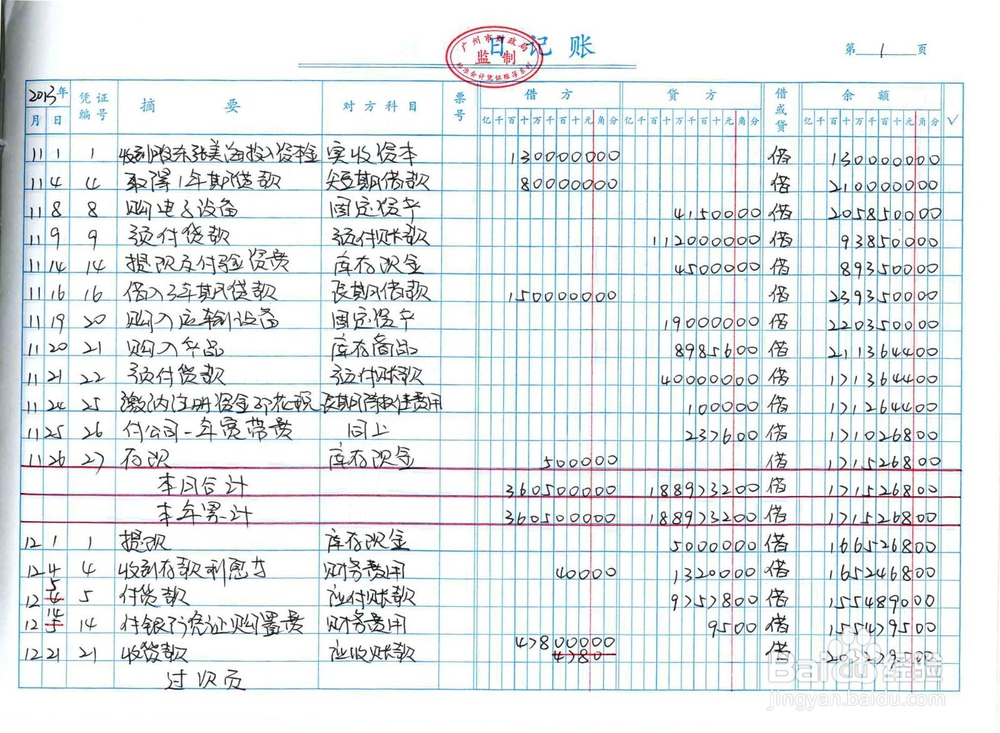 日记账
广州市财政局
监制
第 1 页
2013年 凭证编号 摘要 对方科目 票号 借方 贷方 借或贷 余额 √
月 日 亿千百十万千百十元角分 亿千百十万千百十元角分 亿千百十万千百十元角分
11 1 1 收到股东张美海投入资本金 实收资本 130000000 借 130000000
11 4 4 取得1年期贷款 短期借款 80000000 借 210000000
11 8 8 购电子设备 固定资产 4150000 借 205850000
11 9 9 预付货款 预付账款 112000000 借 93850000
11 14 14 提现支付验资费 库存现金 4500000 借 89350000
11 16 16 借入3年期贷款 长期借款 150000000 借 239350000
11 19 20 购入运输设备 固定资产 19000000 借 220350000
11 20 21 购入产品 库存商品 8985600 借 211364400
11 21 22 预付货款 预付账款 40000000 借 171364400
11 24 25 缴纳注册资金印花税 长期待摊费用 100000 借 171264400
11 25 26 付公司一年宽带费 同上 237600 借 171026800
11 26 27 存现 库存现金 500000 借 171526800
本月合计 360500000 188973200 借 171526800
本年累计 360500000 188973200 借 171526800
12 1 1 提现 库存现金 5000000 借 166526800
12 4 4 收到存款利息 财务费用 40000 1320000 借 165246800
12 5 5 付货款 应付账款 9757800 借 155489000
12 14 14 付银行凭证购置费 财务费用 9500 借 155479500
12 21 21 收货款 应收账款 47800000 4780 借 203279500
过次页
Baidu 经验
jingyan.baidu.com